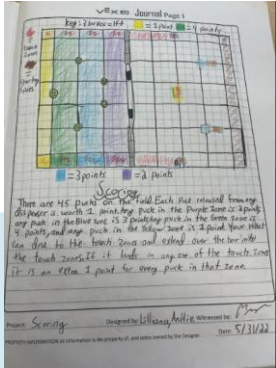 VEX Journal Page 1
Key: 3 boxes = 1 ft = 1 point = 4 points
= 3 points = 2 points
Scoring
There are 45 pucks on the field. Each Puck released from any
dispenser is worth 1 point. Any puck in the Purple Zone is 2 points
any puck in the Blue zone is 3 points. Any puck in the Green zone is
4 points, and any puck in the Yellow zone is 1 point. Your robot
can drive to the touch zone and extend over the bar into
the touch zone. If it lands in any one of the touch zone
it is an extra 1 point for every puck in that zone.
Project: Scoring Designed by: Witnessed by:
Date: 5/31/22
PROPRIETARY INFORMATION all information is the property of, and solely owned by the Designer.